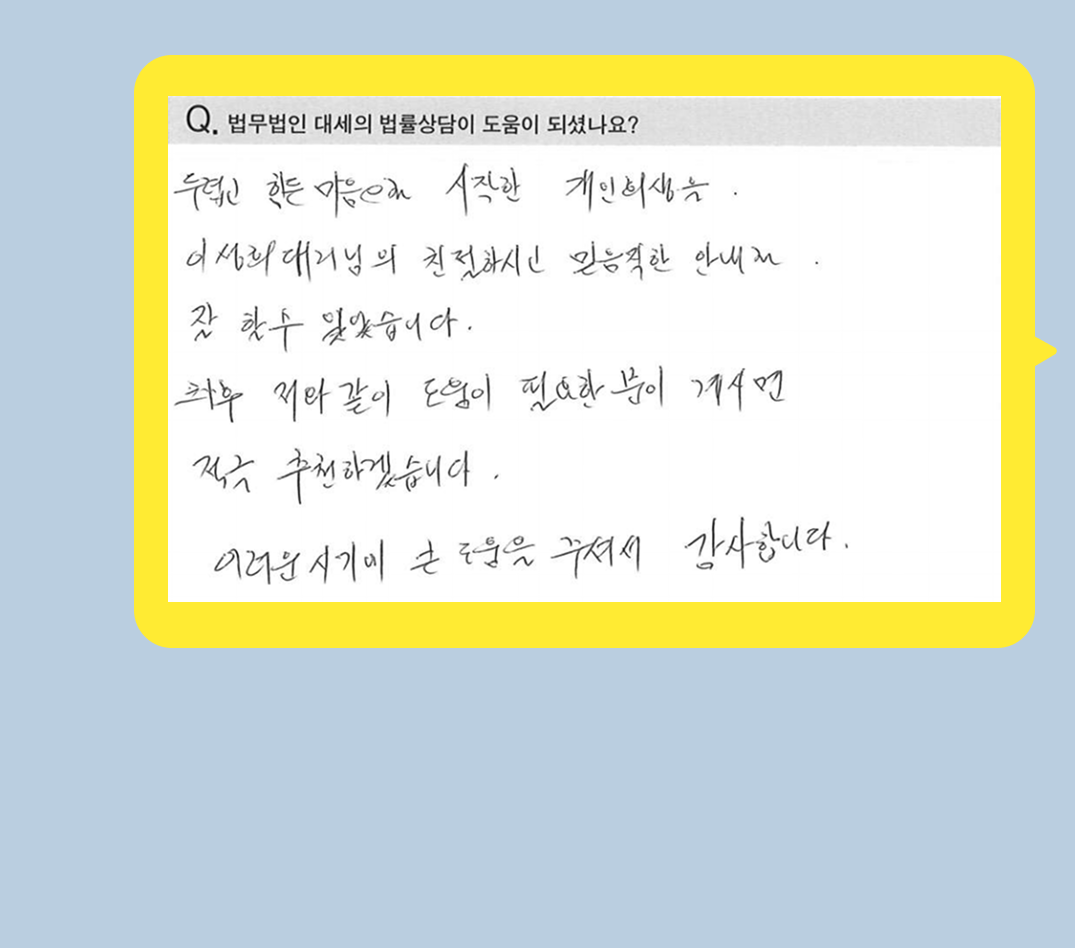 Q. 법무법인 대세의 법률상담이 도움이 되셨나요?
두렵고 힘든 마음으로 시작한 개인회생을.
이성희대리님의 친절하시고 믿음직한 안내로.
잘 할수 있었습니다.
차후 저와 같이 도움이 필요한 분이 계시면
적극 추천하겠습니다.
어려운 시기에 큰 도움을 주셔서 감사합니다.